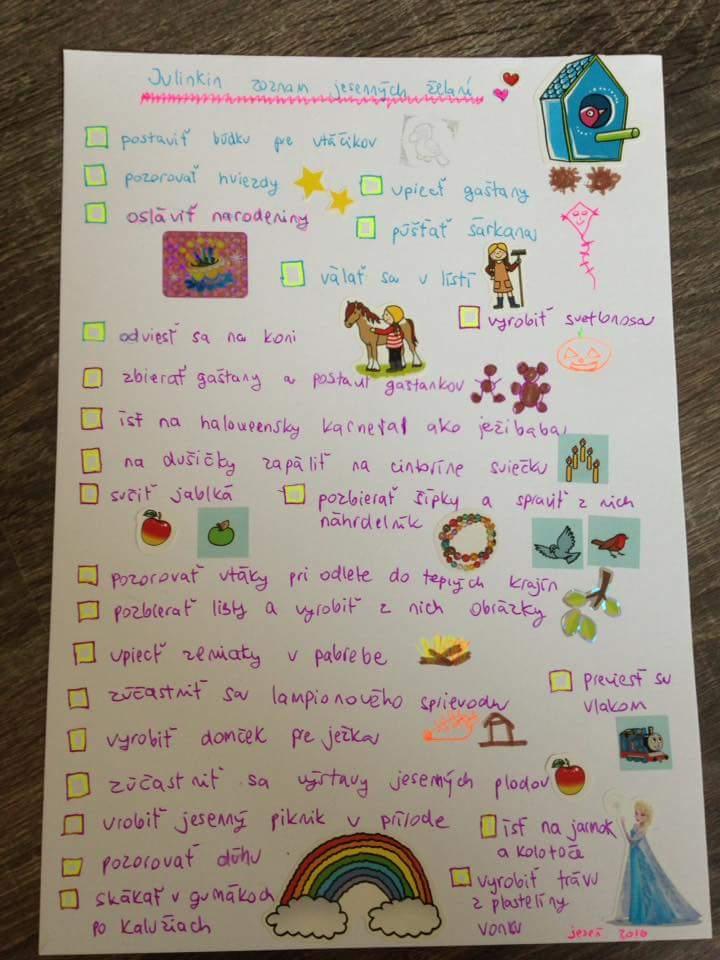 Julinkin zoznam jesenných želaní
postaviť búdku pre vtáčikov
pozorovať hviezdy
upiecť gaštany
osláviť narodeniny
púšťať šarkana
váľať sa v lístí
odviesť sa na koni
vyrobiť svetlonosa
zbierať gaštany a postaviť gaštankov
ísť na haloweensky karneval ako ježibaba
na dušičky zapáliť na cintoríne sviečku
sušiť jablká
pozbierať šípky a spraviť z nich
náhrdelník
pozorovať vtáky pri odlete do teplých krajín
pozbierať listy a vyrobiť z nich obrázky
upiecť zemiaky v pahrebe
zúčastniť sa lampionového sprievodu
previesť sa
vlakom
vyrobiť domček pre ježka
zúčastniť sa výstavy jesenných plodov
urobiť jesenný piknik v prírode
ísť na jarmok
a kolotoče
pozorovať dúhu
skákať v gumákoch
po kalužiach
vyrobiť trávu
z plastelíny
vonku
jeseň 2016